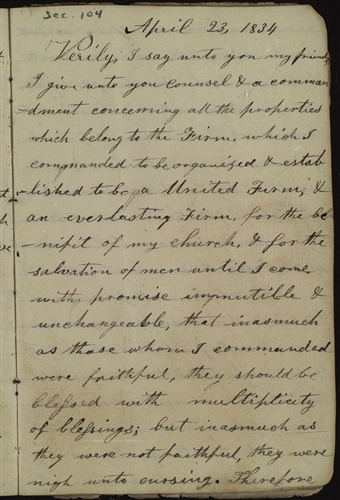 Sec. 104
April 23, 1834
Verily, I say unto you my friends,
I give unto you counsel & a comman
-dment concerning all the properties
which belong to the Firm, which I
commanded to be organized & estab
-lished to be a United Firm, &
an everlasting Firm, for the be
-nifit of my church, & for the
salvation of men until I come,
with promise immutible &
unchangeable, that inasmuch
as those whom I commanded
were faithful, they should be
blessed with multiplicity
of blessings; but inasmuch as
they were not faithful, they were
nigh unto cursing. Therefore